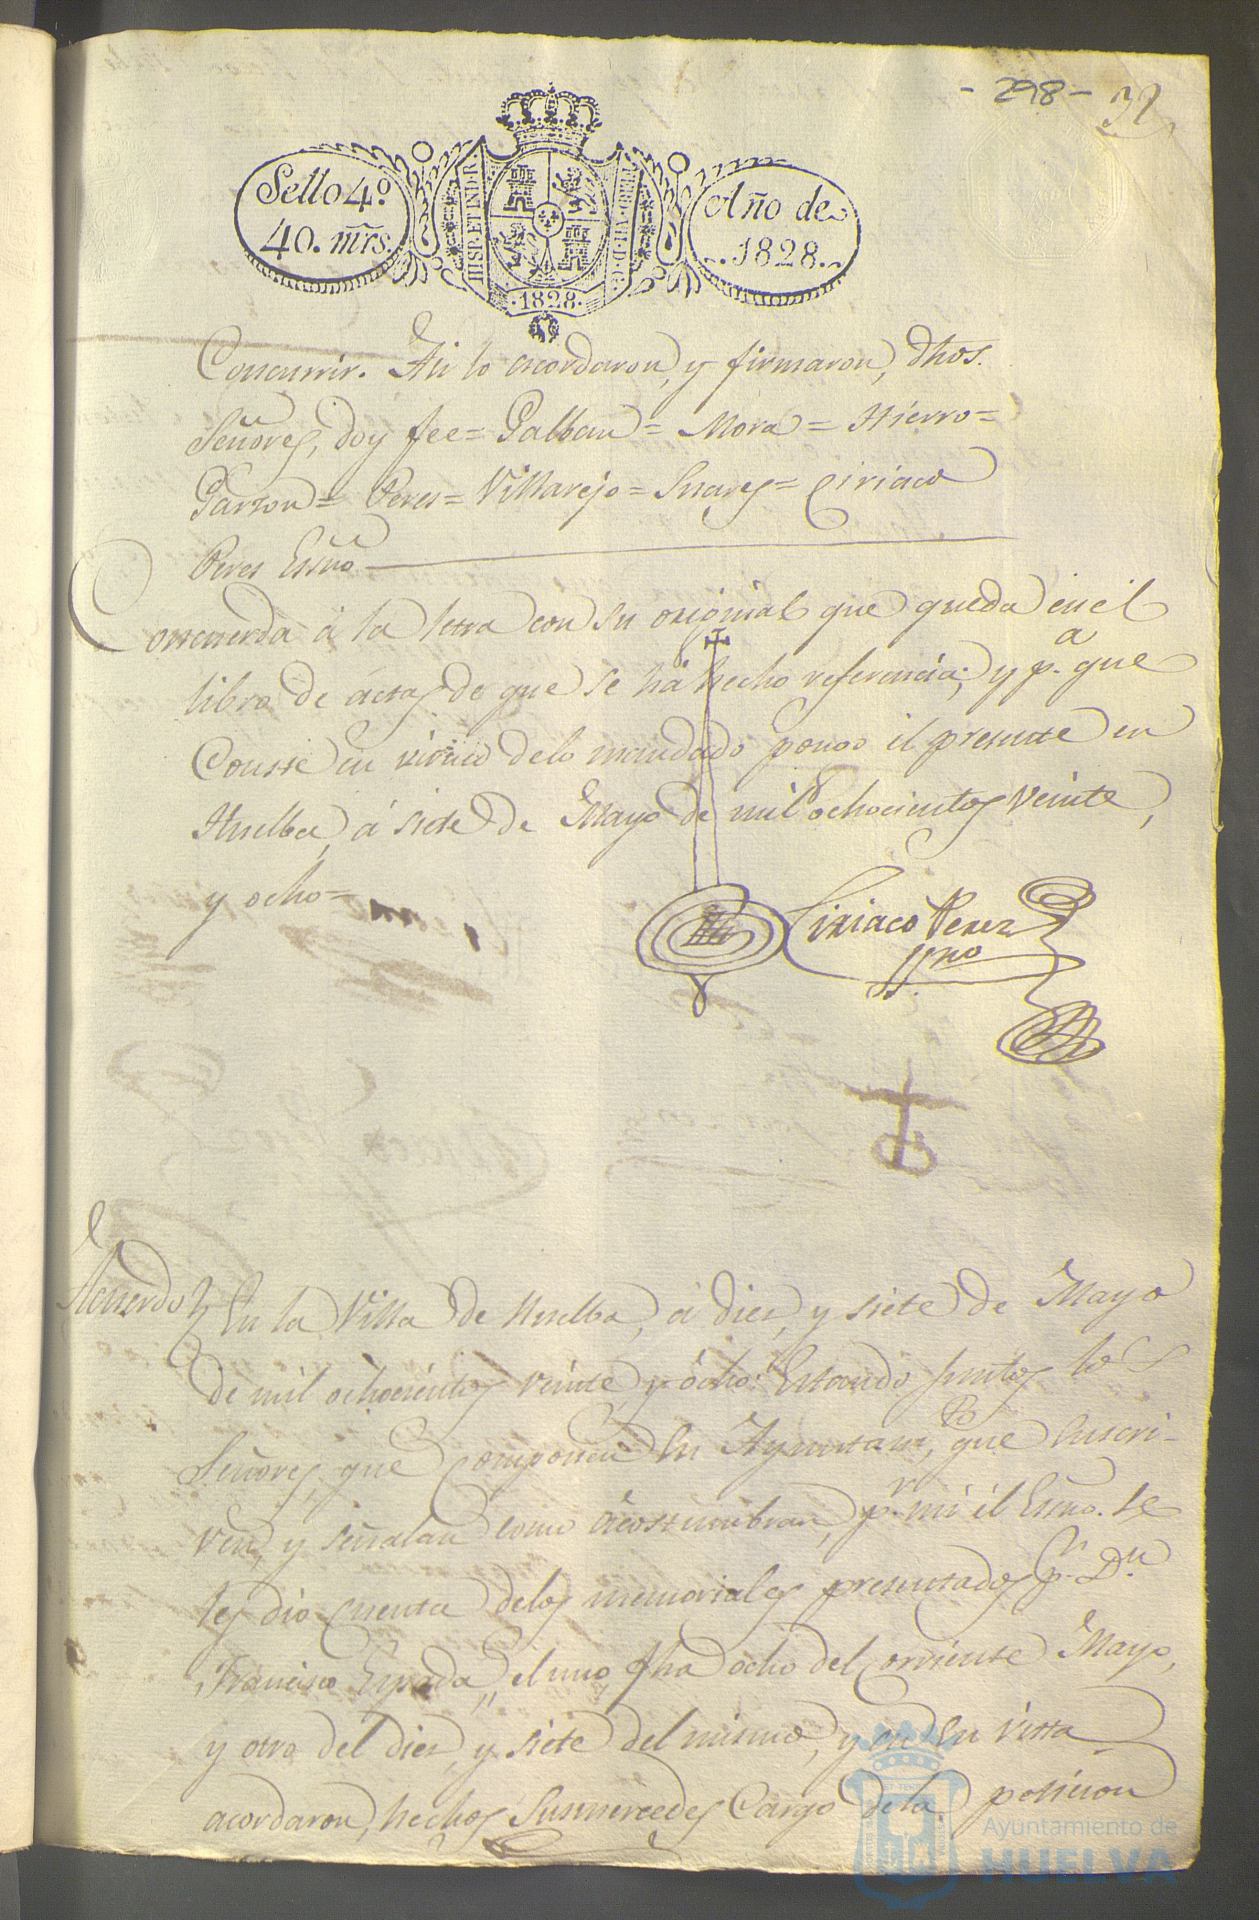 - 298 - 32
Sello 4º
40. mrs.
HISP. ET IND. R.
FERD. VII. D. G.
.1828.
Año de
1828.
Concurrir. Asi lo acordaron, y firmaron, dhos.
Señores, doy fee = Galban = Mora = Hierro =
Garzon = Peres = Villarejo = Suares = Ciriaco
Peres Essno
Concuerda á la letra con su original que queda en el
libro de actas de que se há hecho referencia; y p.a que
Conste en virtud delo mandado pongo el presente en
Huelba, á siete de Mayo de mil ochocientos veinte,
y ocho =
Ciriaco Perez
Ssno
Acuerdo En la Villa de Huelba, á diez, y siete de Mayo
de mil ochocientos veinte, y ócho: Estando juntos los
Señores, que componen su Ayuntam.to, que suscri-
ven, y señalan como ácostumbran, p.r mi el Essno. se
les dio cuenta delos memoriales presentados p.r D.n
Francisco Espada, el uno, fha ocho del corriente Mayo,
y otro del diez, y siete del mismo, y en su vista
acordaron, hechos Susmercedes Cargo de la peticion
Ayuntamiento de
HUELVA